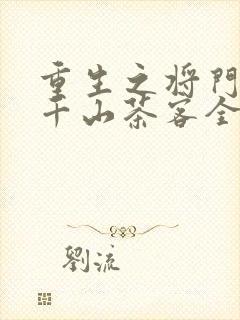 重生之将門
千山茶客全
劉流